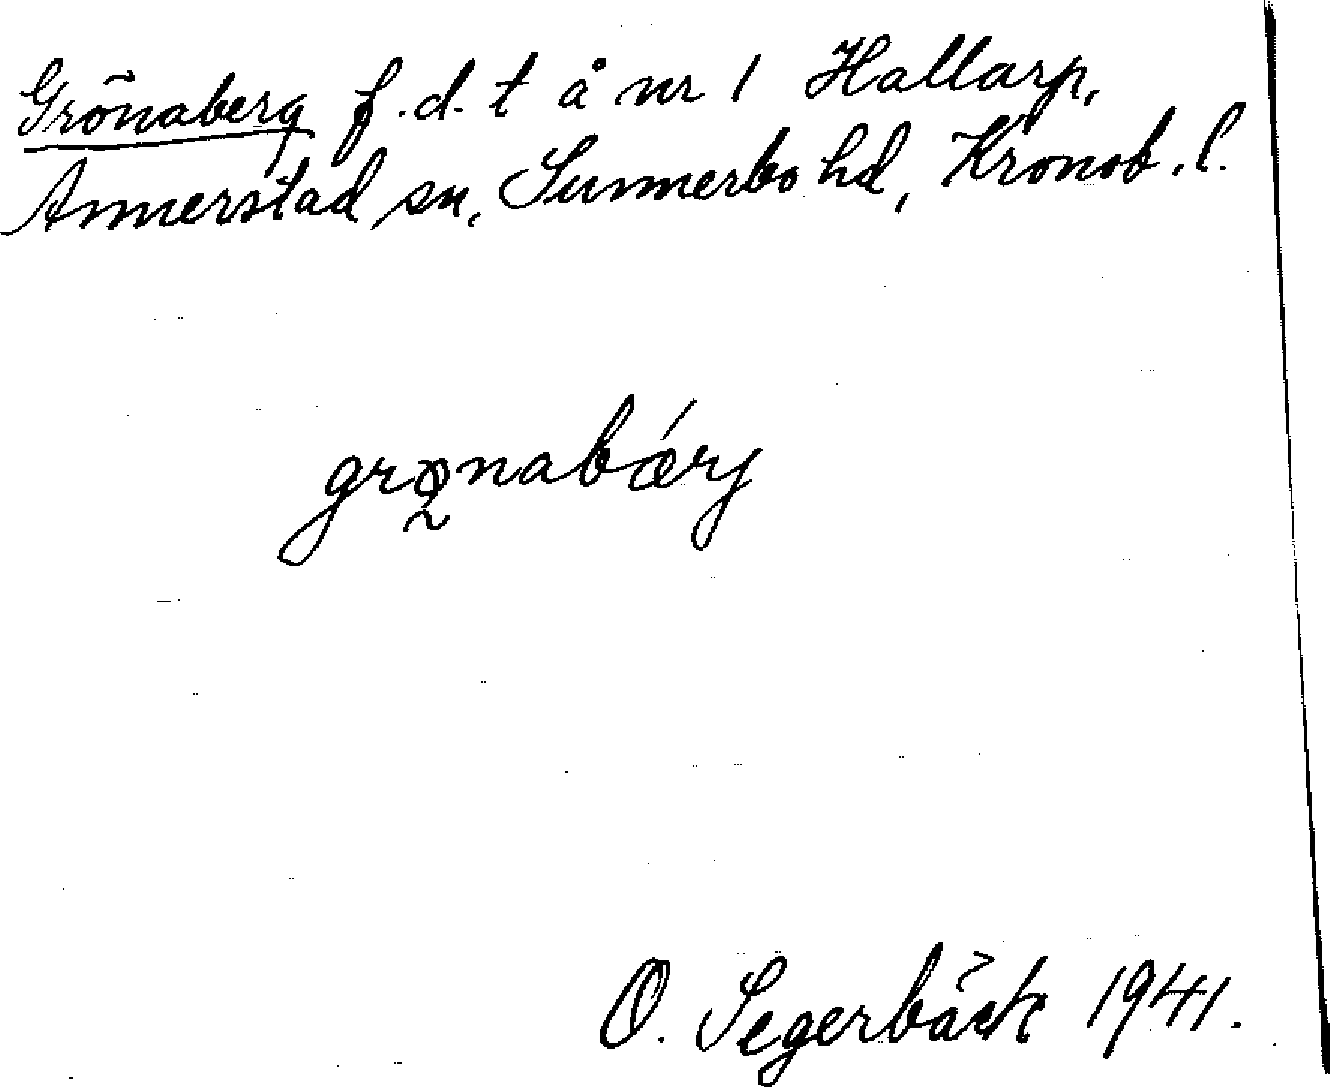 Grönaberg f.d. t å nr 1 Hallarp,
Annerstad sn, Sunnerbo hd, Kronob. l.
grø̰nabǽrj
O. Segerbäck 1941.